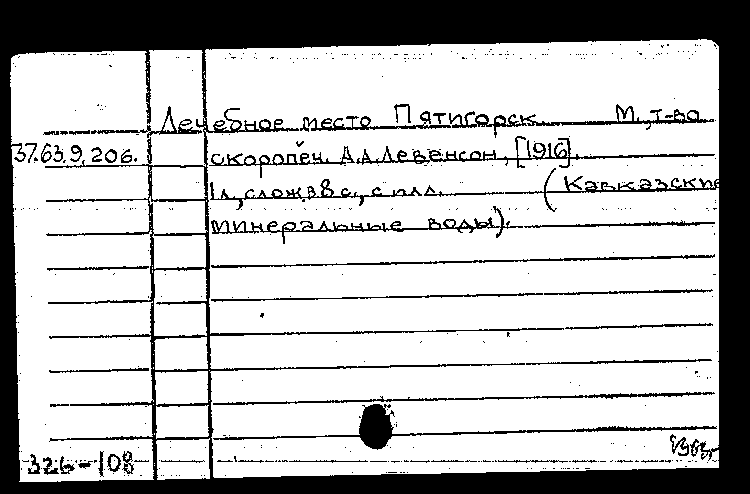 Лечебное место Пятигорск. М., т-во
37.63.9.206. скоропеч. А.А.Левенсон, [1916].
1л., слож. в 8 с., с илл. (Кавказские
минеральные воды).
326-108